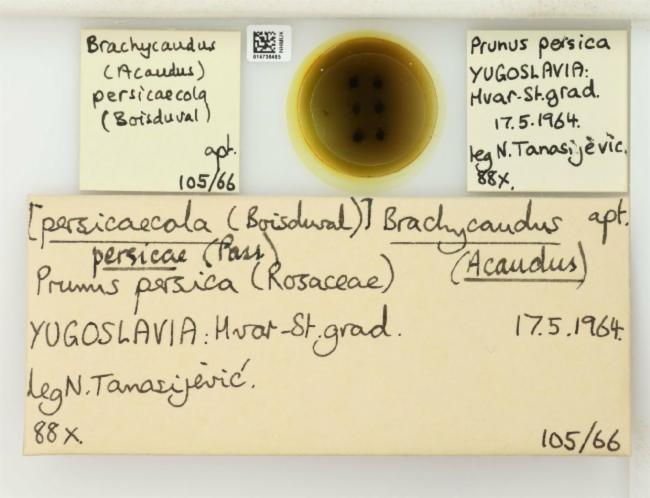 Brachycaudus
(Acaudus)
persicaecola
(Boisduval)
apt.
105/66
NHMUK
014736485
Prunus persica
YUGOSLAVIA:
Hvar-St.grad.
17.5.1964.
leg N. Tanasijèvic.
88x.
[persicaecola (Boisduval)] Brachycaudus apt.
persicae (Pass) (Acaudus)
Prunus persica (Rosaceae)
YUGOSLAVIA: Hvar-St.grad. 17.5.1964.
leg N. Tanasijèvić.
88x. 105/66